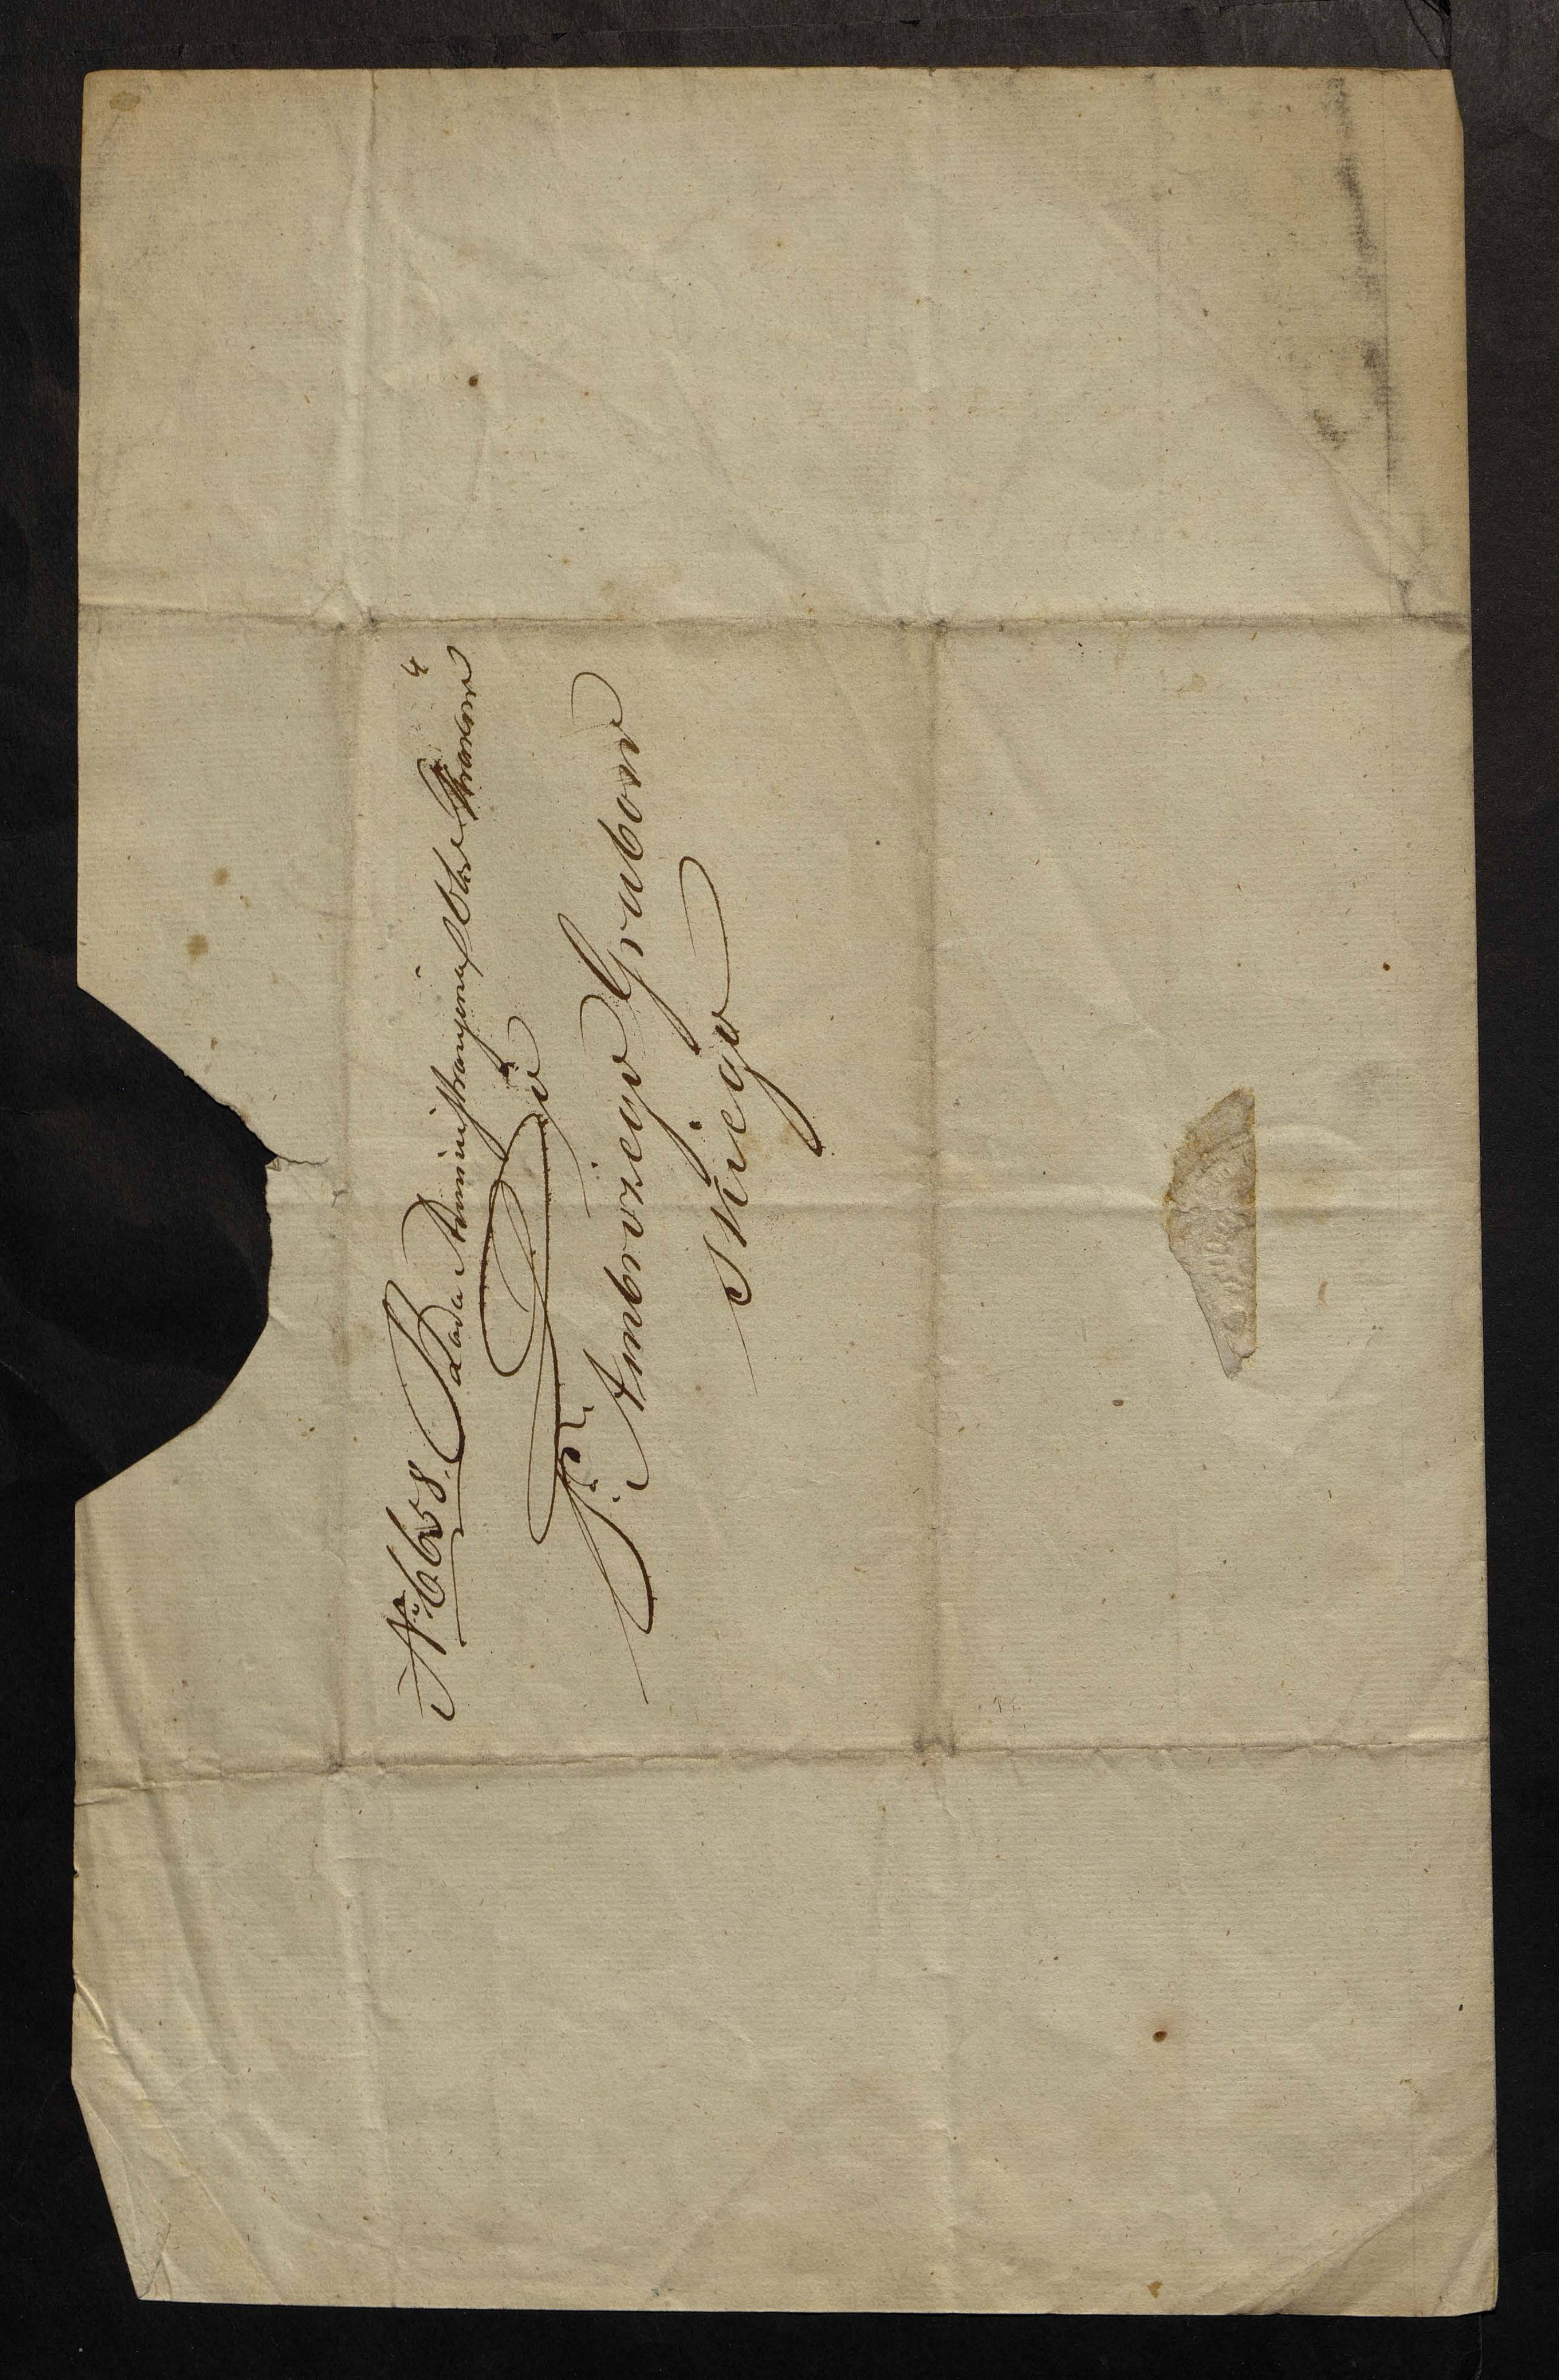 No 6658. Rada Administracyina Obwodu Krakow
4
Do
Pa. Ambrożego Grabow
skiego